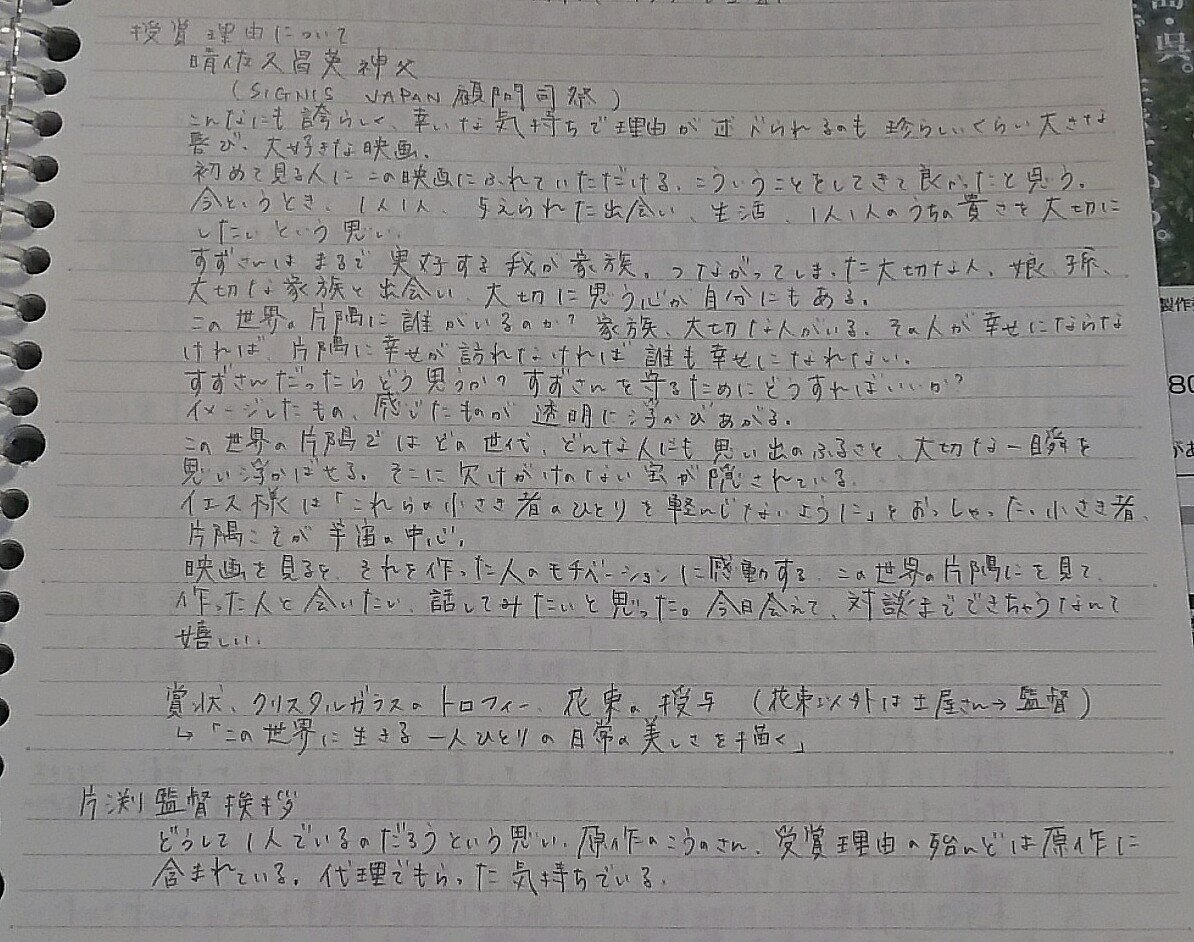 授賞理由について
晴佐久昌英神父
(SIGNIS JAPAN 顧問司祭)
こんなにも誇らしく、幸いな気持ちで理由が述べられるのも珍らしいくらい大きな
喜び、大好きな映画。
初めて見る人にこの映画にふれていただける、こういうことをしてきて良かったと思う。
今というとき、1人1人、与えられた出会い、生活、1人1人のうちの貴さを大切に
したいという思い。
すずさんはまるで実好する我が家族。つながってしまった大切な人、娘、孫、
大切な家族と出会い、大切に思う心が自分にもある。
この世界の片隅に誰がいるのか?家族、大切な人がいる。その人が幸せにならな
ければ、片隅に幸せが訪れなければ誰も幸せになれない。
すずさんだったらどう思うか?すずさんを守るためにどうすればいいか?
イメージしたもの、感じたものが透明に浮かびあがる。
この世界の片隅ではどの世代、どんな人にも思い出のふるさと、大切な一瞬を
思い浮かばせる。そこに欠けがけのない宝が隠されている。
イエス様は「これらの小さき者のひとりを軽んじないように」とおっしゃった。小さき者、
片隅こそが宇宙の中心。
映画を見ると、それを作った人のモチベーションに感動する。この世界の片隅にを見て、
作った人と会いたい、話してみたいと思った。今日会えて、対談までできちゃうなんて
嬉しい。
賞状、クリスタルガラスのトロフィー、花束の授与 (花束以外は土屋さん→監督)
↳「この世界に生きる一人ひとりの日常の美しさを描く」
片渕監督挨拶
どうして1人でいるのだろうという思い。原作のこうのさん、受賞理由の殆んどは原作に
含まれている。代理でもらった気持ちでいる。
呉。
製作
80
があ